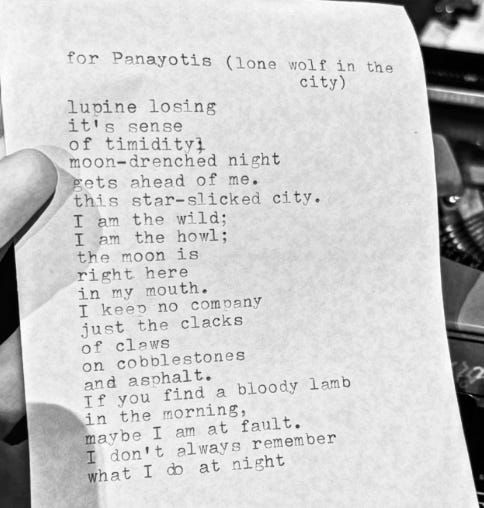 for Panayotis (lone wolf in the
city)
lupine losing
it's sense
of timidity;
moon-drenched night
gets ahead of me.
this star-slicked city.
I am the wild;
I am the howl;
the moon is
right here
in my mouth.
I keep no company
just the clacks
of claws
on cobblestones
and asphalt.
If you find a bloody lamb
in the morning,
maybe I am at fault.
I don't always remember
what I do at night